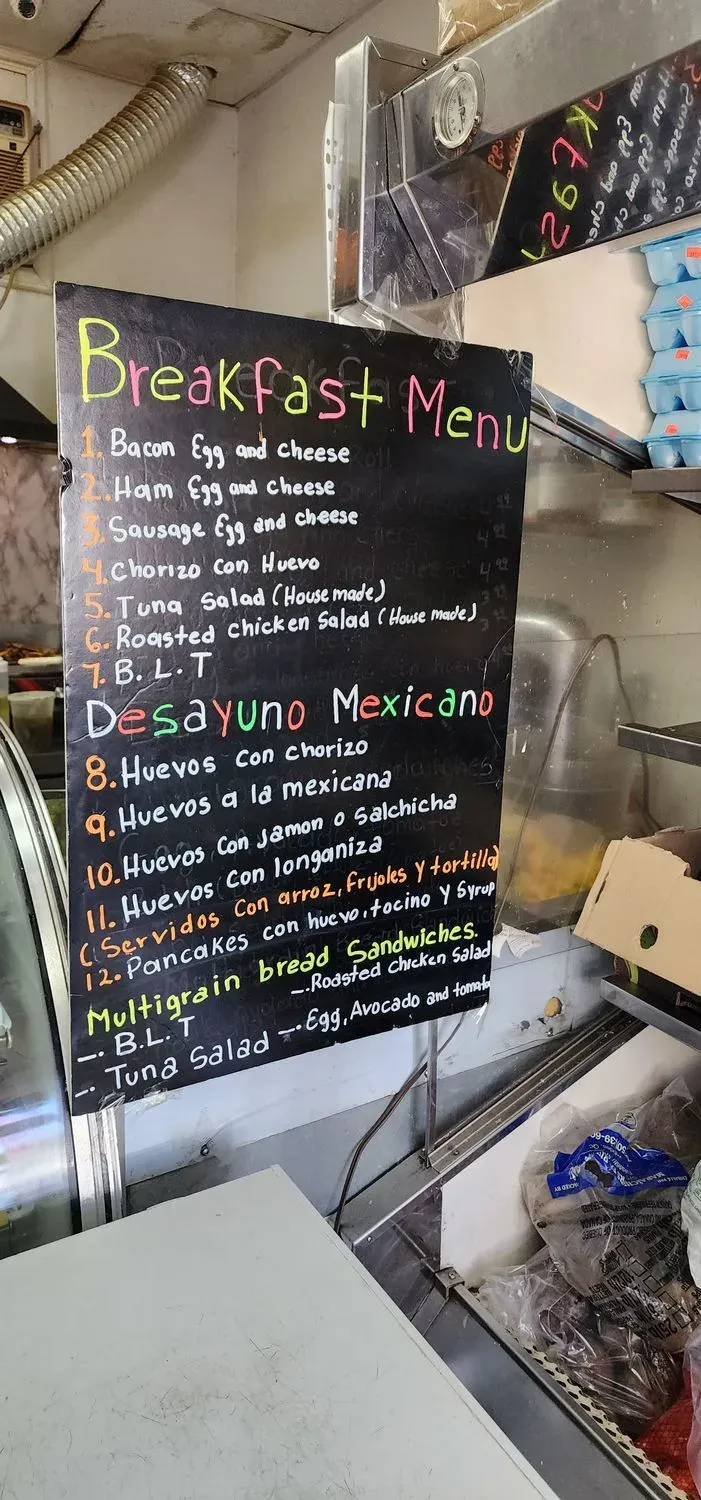 Breakfast Menu
1. Bacon Egg and cheese
2. Ham Egg and cheese
3. Sausage Egg and cheese
4. Chorizo con Huevo
5. Tuna Salad (House made)
6. Roasted chicken Salad (House made)
7. B. L. T
Desayuno Mexicano
8. Huevos con chorizo
9. Huevos a la mexicana
10. Huevos con jamon o Salchicha
11. Huevos con longaniza
(Servidos con arroz, frijoles y tortilla)
12. Pancakes con huevo, tocino y Syrup
Multigrain bread Sandwiches.
-. B.L.T
-. Roasted chicken Salad
-. Tuna Salad
-. Egg, Avocado and tomato